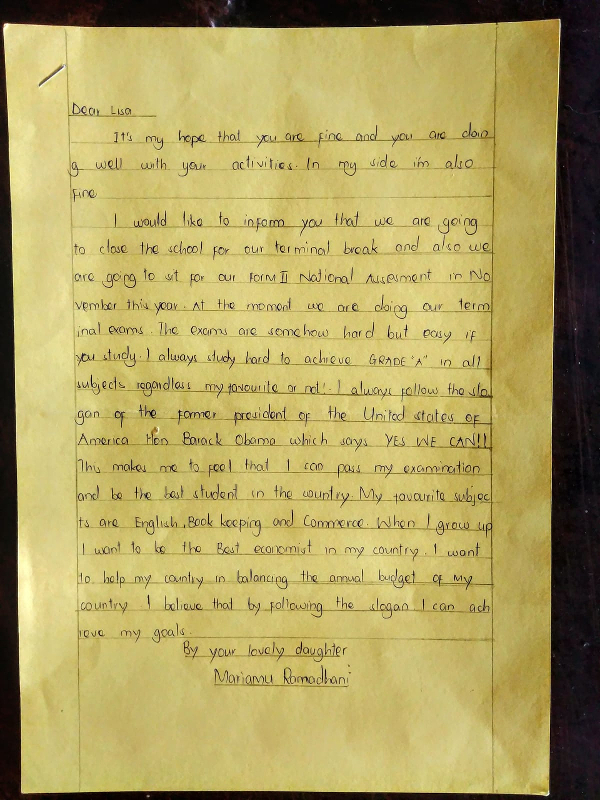 Dear Lisa
It's my hope that you are fine and you are doin
g well with your activities. In my side i'm also
fine
I would like to inform you that we are going
to close the school for our terminal break and also we
are going to sit for our FORM II National Assesment in No
vember this year. At the moment we are doing our term
inal exams. The exams are somehow hard but easy if
you study. I always study hard to achieve GRADE "A" in all
subjects regardlass my favourite or not!. I always follow the slo
gan of the former president of the United states of
America Hon Barack Obama which says YES WE CAN!!
This makes me to feel that I can pass my examination
and be the best student in the country. My favourite subjec
ts are English, Book keeping and Commerce. When I grow up
I want to be the Best economist in my country. I want
to help my country in balancing the annual budget of my
country. I believe that by following the slogan I can ach
ieve my goals.
By your lovely daughter
Mariamu Ramadhani